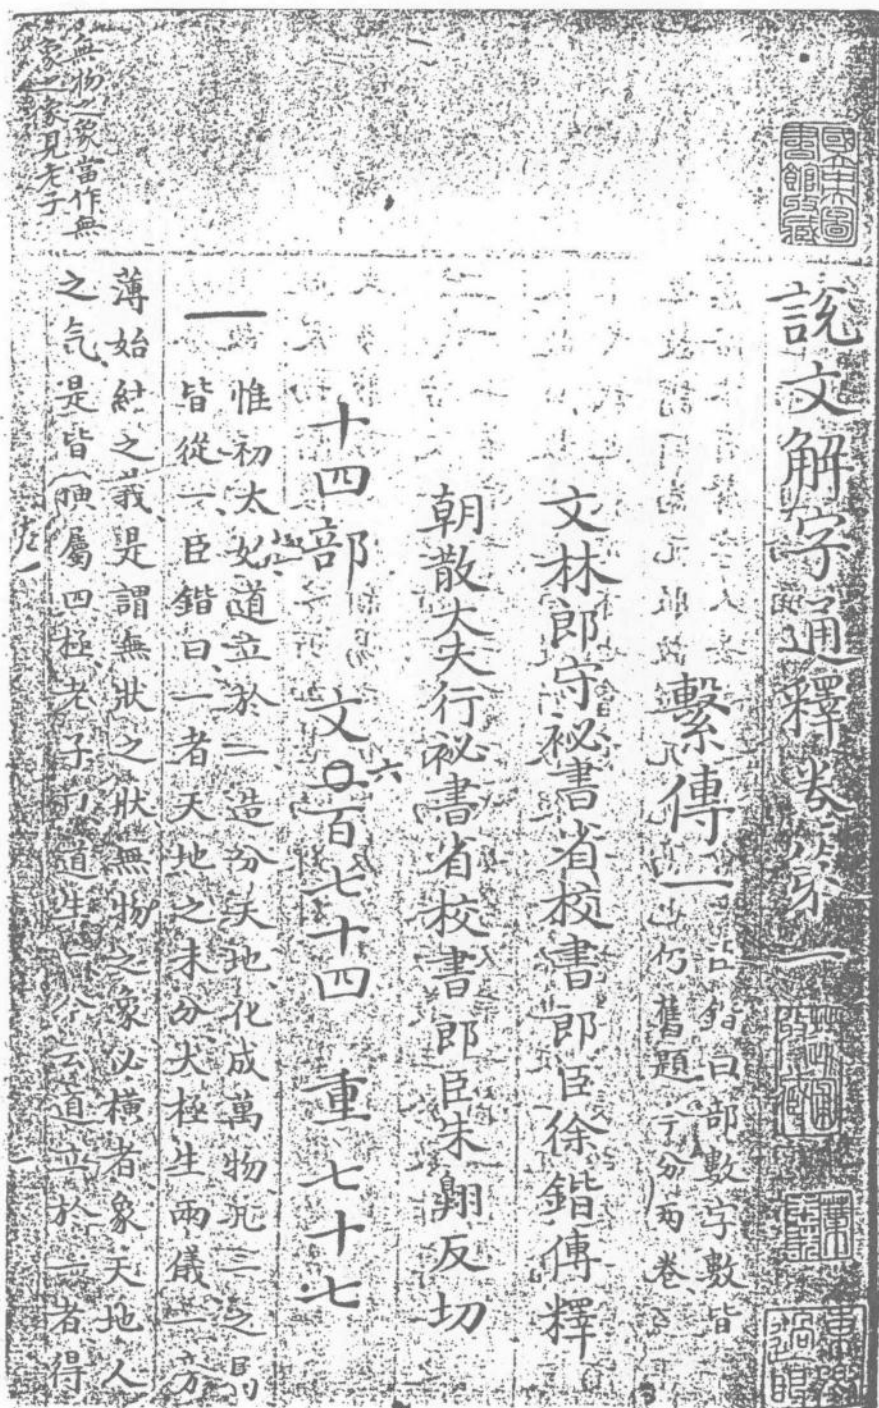 說文解字通釋卷第一
繫傳一
臣鍇曰部數字數皆
仍舊題今分兩卷
文林郎守祕書省校書郎臣徐鍇傳釋
朝散大夫行祕書省校書郎臣朱翱反切
十四部 文二百七十四 重七十七
六
一
惟初太始道立於一造分天地化成萬物凡一之屬
皆從一臣鍇曰一者天地之未分太極生兩儀一旁
薄始結之義是謂無狀之狀無物之象必橫者象天地人
之气是皆橫屬四極老子曰道生一今云道立於一者得
無物之象當作無
象之像見老子
國立中央圖
書館收藏